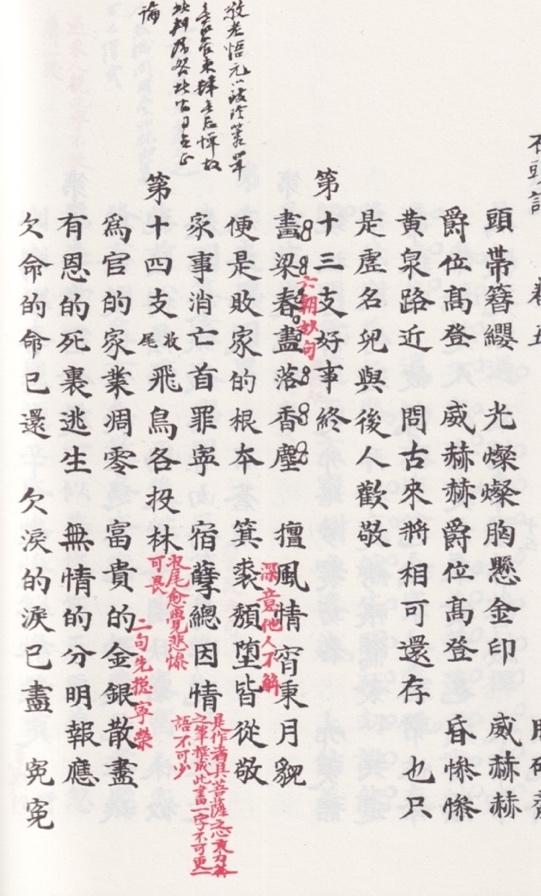 頭帶簪纓 光燦燦胸懸金印 威赫赫
爵位高登 威赫赫爵位高登 昏慘慘
黃泉路近 問古來將相可還存 也只
是虛名兒與後人歡敬
第十三支好事終
畫梁春盡落香塵 擅風情宵秉月貌
六朝妙句
便是敗家的根本 箕裘頹墮皆從敬
深意他人不解
家事消亡首罪寧 宿孽緫因情
是作者具菩薩之心秉刀斧
之筆撰成此書一字不可更一
語不可少
第十四支收尾飛鳥各投林
收尾愈覺悲慘
可畏
為官的家業凋零 富貴的金銀散盡
二句先揔寧榮
有恩的死裏逃生 無情的分明報應
欠命的命已還 欠淚的淚已盡 冤冤